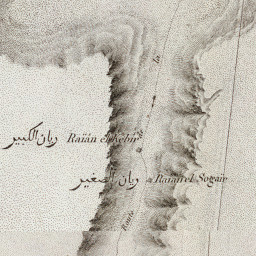 ريان الكبير Raïân el Kebîr
ريان الصغير Raïân el Sogaïr
Route